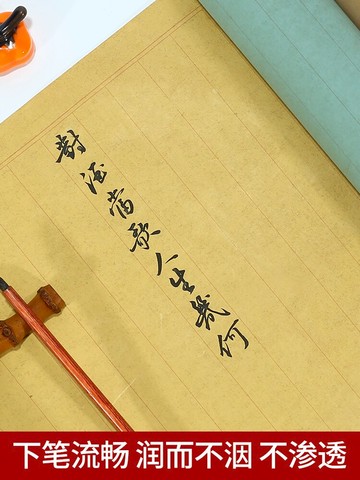 對酒當歌人生幾何
下笔流畅 润而不洇 不渗透